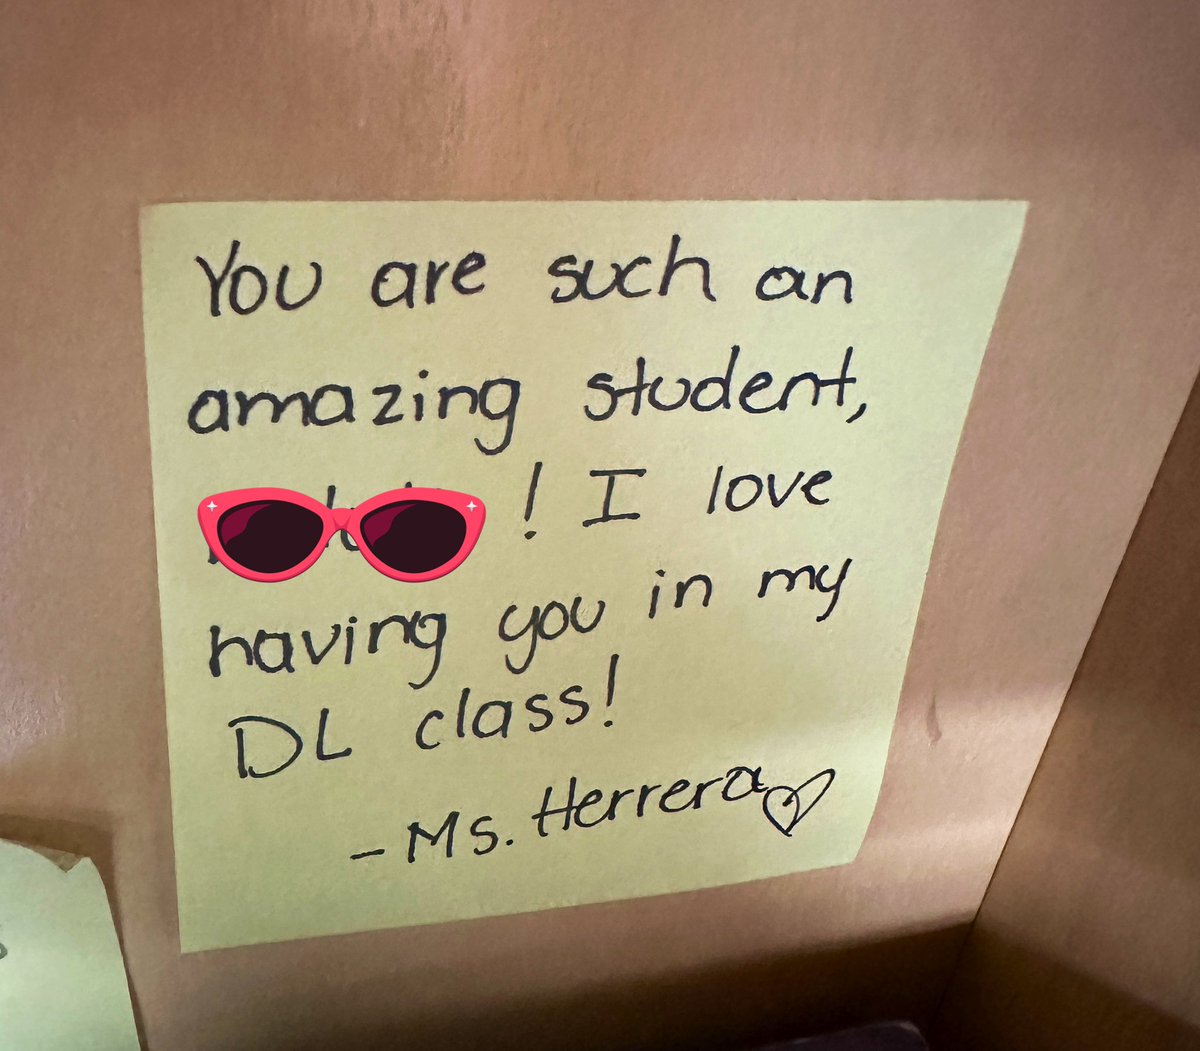 You are such an
amazing student,
! I love
having you in my
DL class!
- Ms. Herrera♡